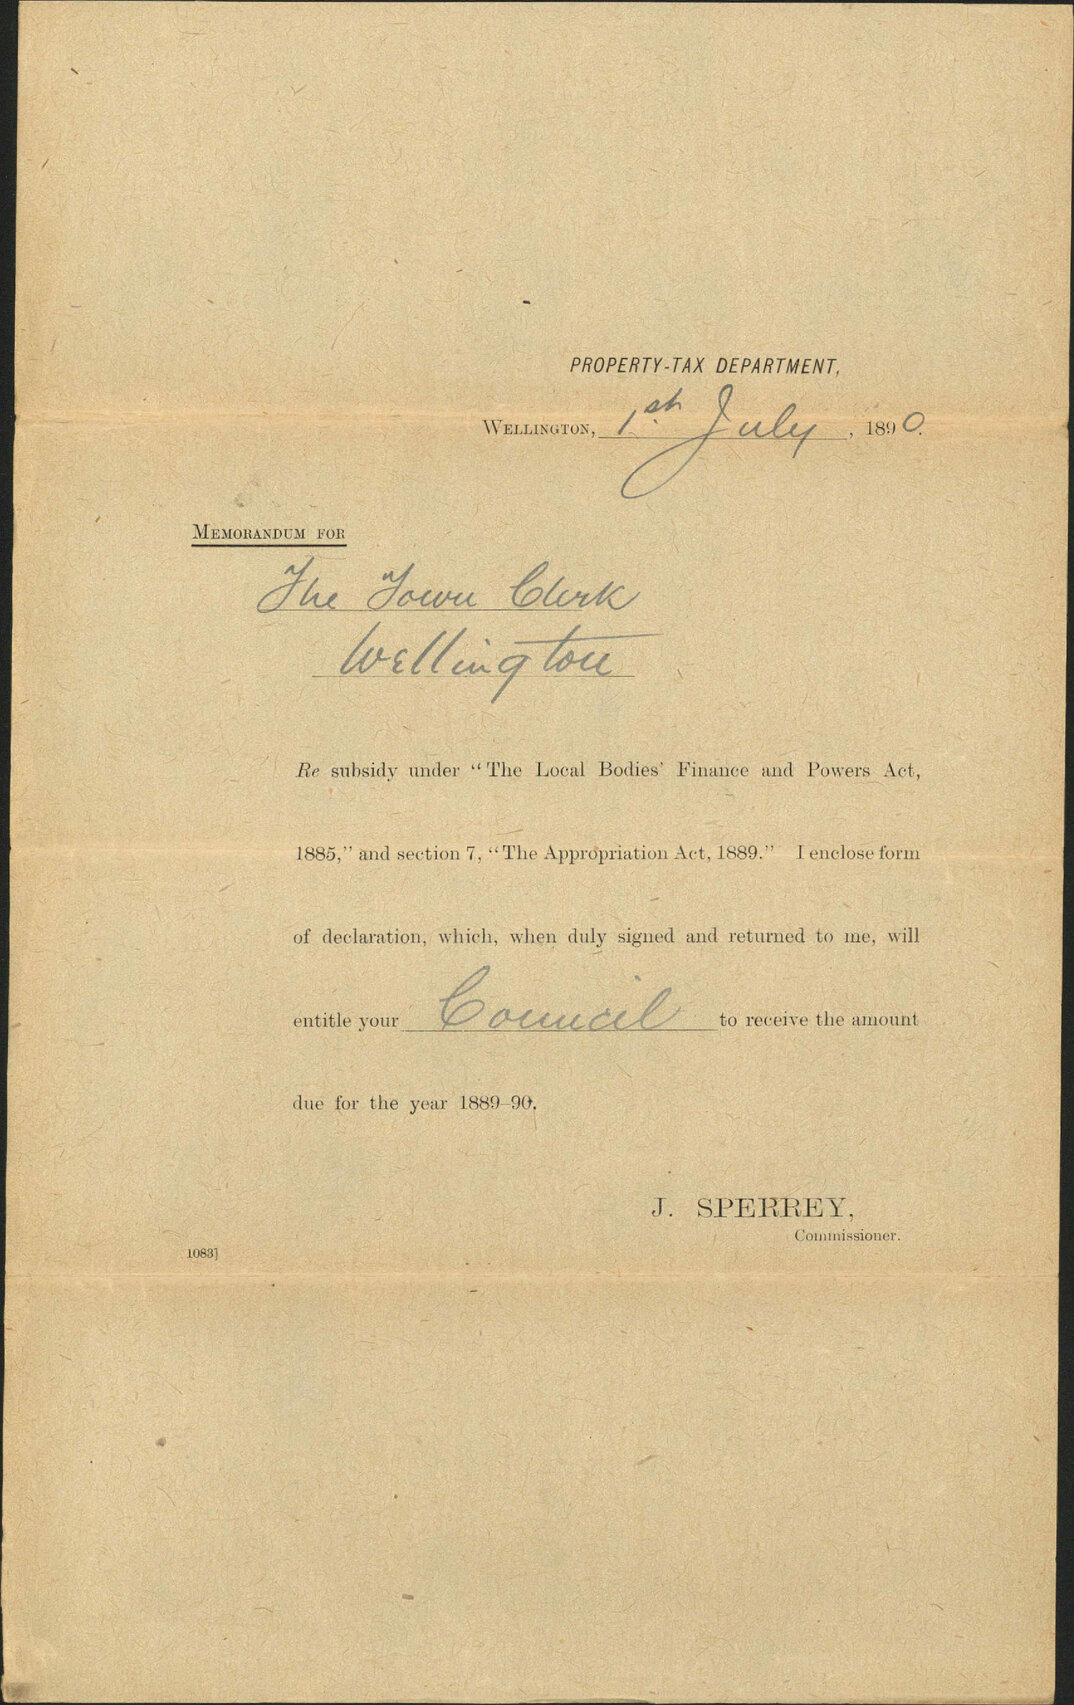 PROPERTY-TAX DEPARTMENT,
WELLINGTON, 1st. July, 1890.
MEMORANDUM FOR
The Town Clerk
Wellington
Re subsidy under “The Local Bodies’ Finance and Powers Act,
1885,” and section 7, “The Appropriation Act, 1889.” I enclose form
of declaration, which, when duly signed and returned to me, will
entitle your Council to receive the amount
due for the year 1889–90.
J. SPERREY,
Commissioner.
1083]